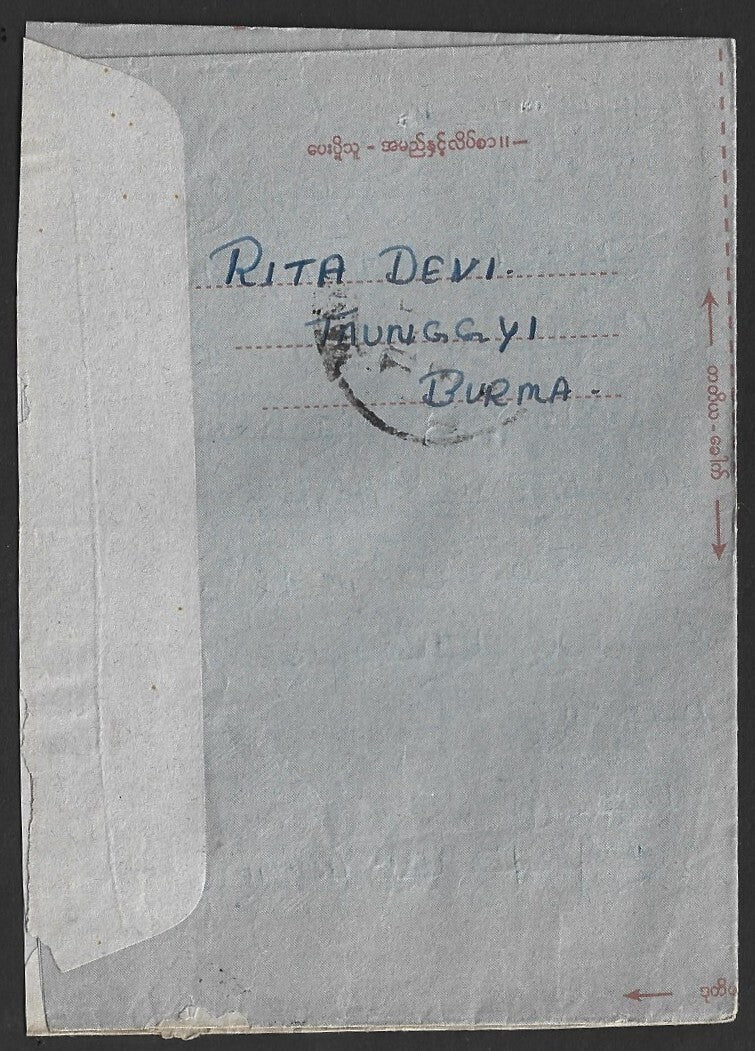 ပေးပို့သူ - အမည်နှင့်လိပ်စာ။ —
RITA DEVI.
TAUNGGYI
BURMA.
တတိယ - ခေါက်
ဒုတိယ